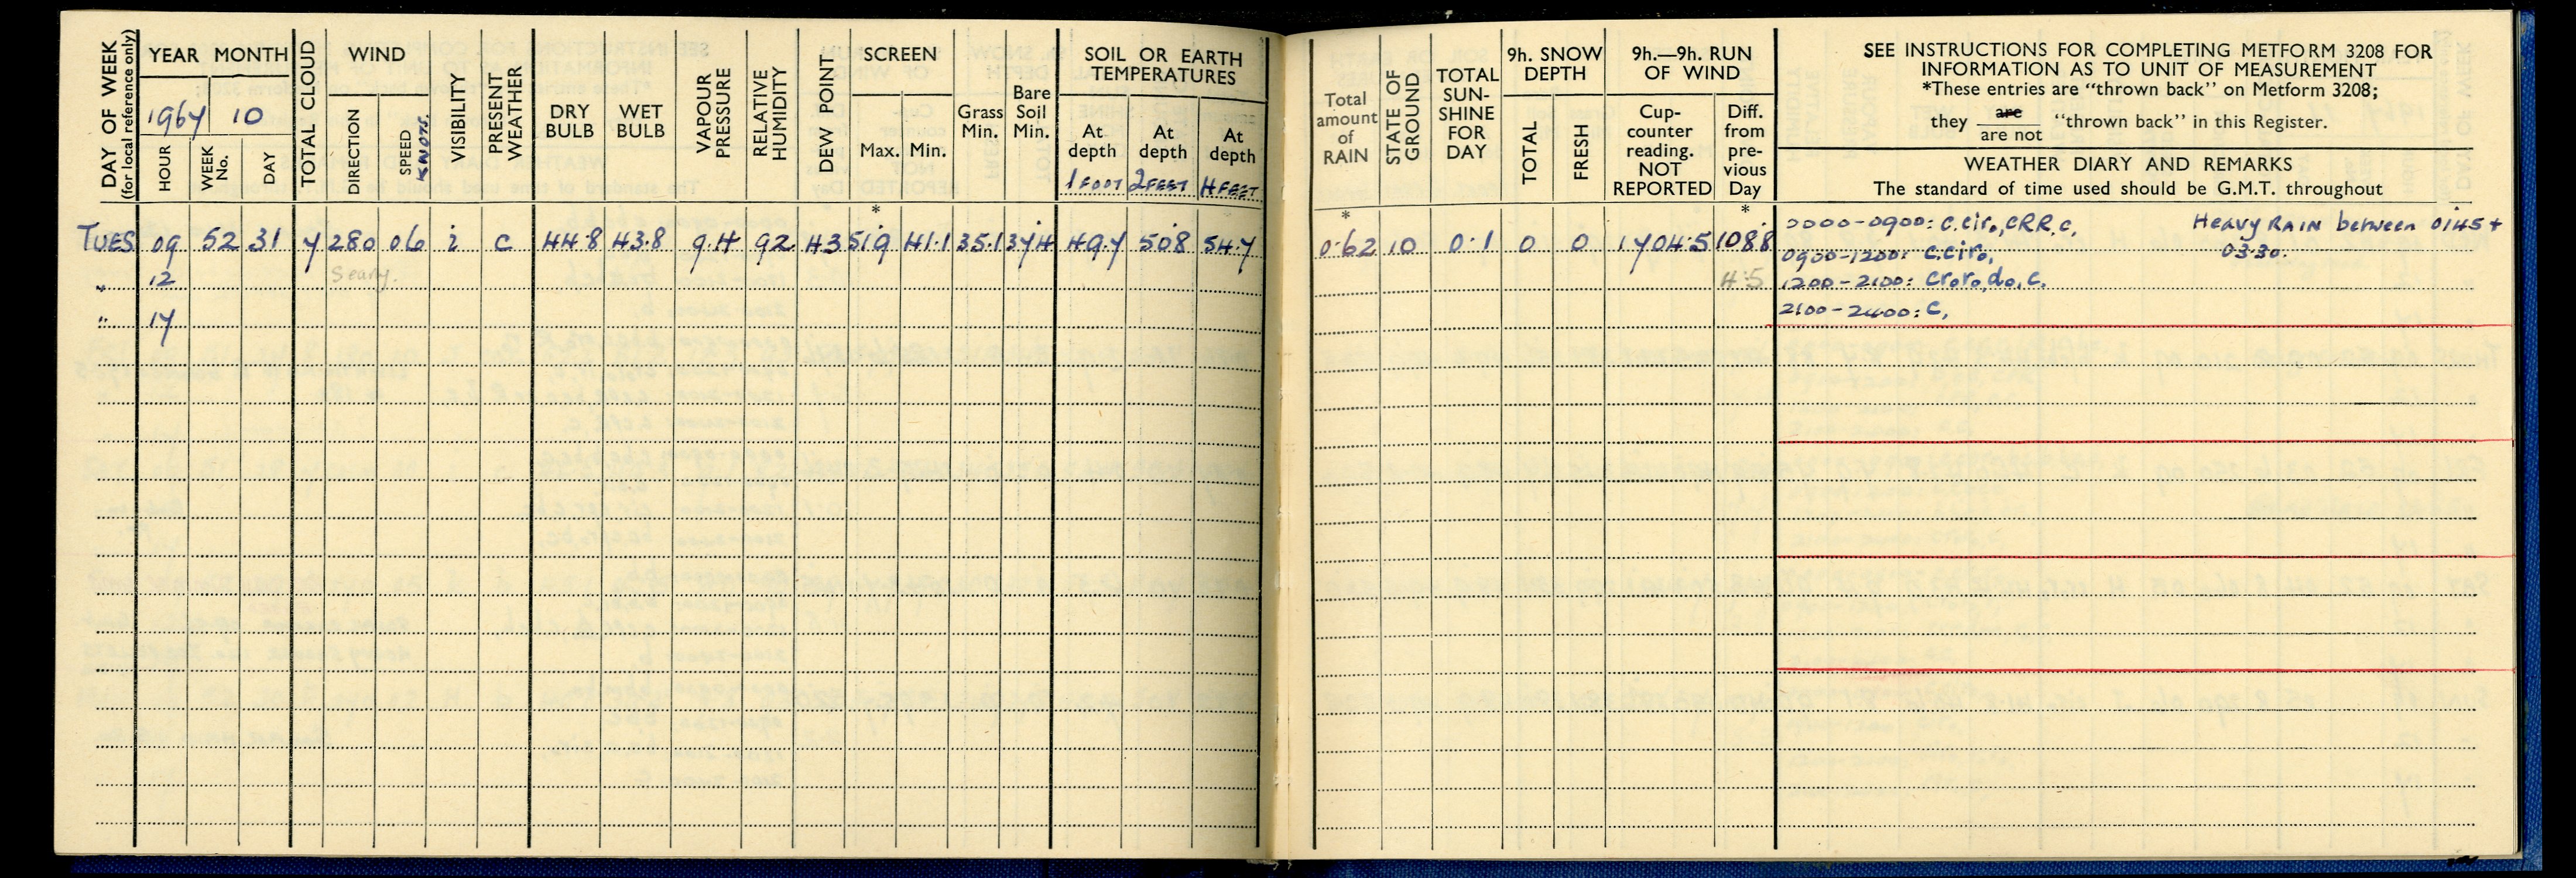 DAY OF WEEK
(for local reference only)
YEAR MONTH
1967 10
HOUR
WEEK No.
DAY
TOTAL CLOUD
WIND
DIRECTION
SPEED
KNOTS.
VISIBILITY
PRESENT WEATHER
DRY BULB
WET BULB
VAPOUR PRESSURE
RELATIVE HUMIDITY
DEW POINT
SCREEN
Max. Min.
*
Grass Min.
Bare Soil Min.
SOIL OR EARTH
TEMPERATURES
At depth 1 FOOT
At depth 2 FEET
At depth 4 FEET
Total amount of RAIN
*
STATE OF GROUND
TOTAL SUN-SHINE FOR DAY
9h. SNOW DEPTH
TOTAL
FRESH
9h.—9h. RUN OF WIND
Cup-counter reading. NOT REPORTED
Diff. from pre-vious Day
*
SEE INSTRUCTIONS FOR COMPLETING METFORM 3208 FOR
INFORMATION AS TO UNIT OF MEASUREMENT
*These entries are "thrown back" on Metform 3208;
they are / are not "thrown back" in this Register.
WEATHER DIARY AND REMARKS
The standard of time used should be G.M.T. throughout
TUES 09 52 31 7 280 06 i c 44.8 43.8 9.4 92 43 51.9 41.1 35.1 37.4 49.7 50.8 54.7 0.62 10 0.1 0 0 1704.5 108.8
0000-0900: c.ciro,cRR,c, Heavy RAIN between 0145 +
03.30.
0900-1200: c.ciro,
" 12 4.5
1200-2100: croro,do,c.
" 17
2100-2400: c,